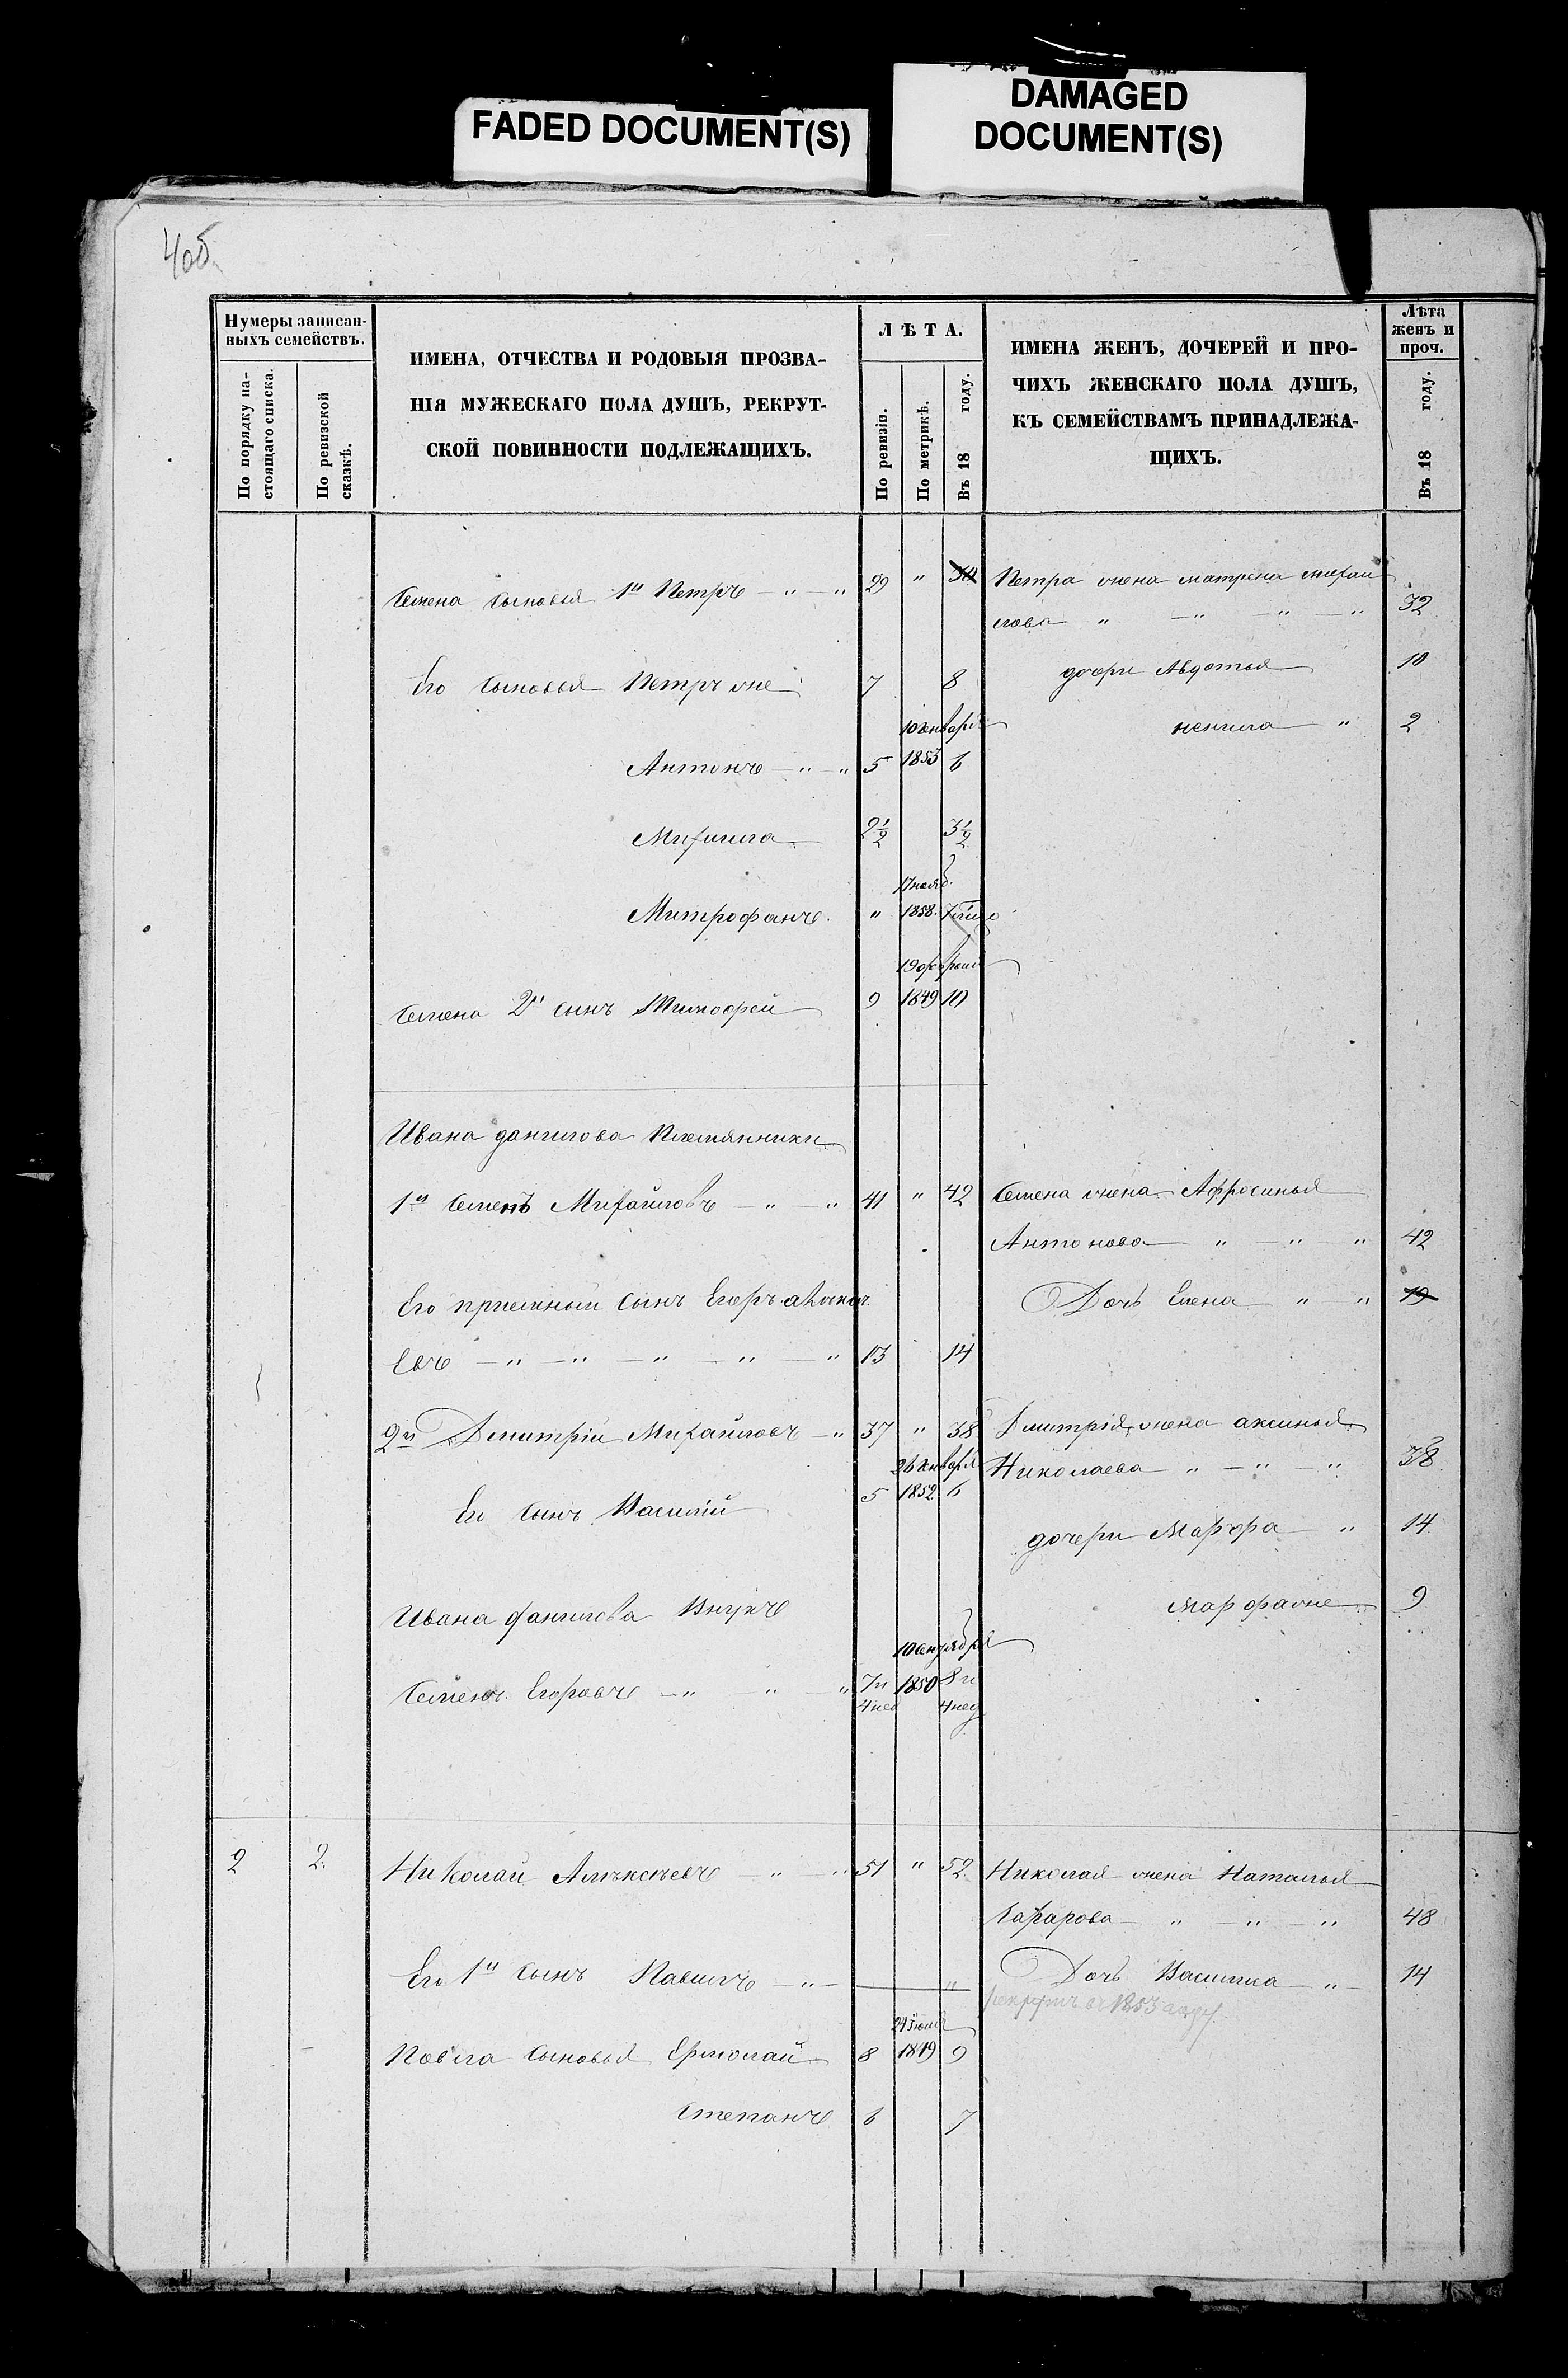 FADED DOCUMENT(S)
DAMAGED
DOCUMENT(S)
4об
Нумеры записан-
ныхъ семействъ.
По порядку на-
стоящаго списка.
По ревизской
сказкѣ.
ИМЕНА, ОТЧЕСТВА И РОДОВЫЯ ПРОЗВА-
НІЯ МУЖЕСКАГО ПОЛА ДУШЪ, РЕКРУТ-
СКОЙ ПОВИННОСТИ ПОДЛЕЖАЩИХЪ.
ЛѢТА.
По ревизіи.
По метрикѣ.
Въ 18 году.
ИМЕНА ЖЕНЪ, ДОЧЕРЕЙ И ПРО-
ЧИХЪ ЖЕНСКАГО ПОЛА ДУШЪ,
КЪ СЕМЕЙСТВАМЪ ПРИНАДЛЕЖА-
ЩИХЪ.
Лѣта
женъ и
проч.
Въ 18 году.
Семена сыновья 1й Петръ — " — " 29 " Петра жена матрена михаи
лова " — " — " — " 32
Его сыновья Петръ же 7 8 дочери Авдотья 10
10 января " 2
Антонъ — " — " 5 1853 6
Михаила 2½ 3½
17 нояб.
Митрофанъ. " 1858.
19 февраля
Семена 2й сынъ Тимофей 9 1849 10
Ивана данилова Племянники
1й Семенъ Михайловъ — " — " 41 " 42 Семена жена Афросинья
Антонова — " — " " 42
Его приемный сынъ Егоръ Дочь Елена — " — " 19
евъ — " — " — " — " — " 13 14
2й Дмитрій Михайловъ — " 37 " 38 Дмитрія жена аксинья
26 января Николаева " — " — " 38
Его сынъ Василій 5 1852 6
дочери Марфа — " 14
Ивана данилова Внукъ Марфа же 9
10 сентября
Семенъ Егоровъ — " — " — " 7 и 1850 8 и
4 нед 4 нед
2 2. Николай Алѣксѣевъ — " — " 51 " 52 Николая жена Наталья
Захарова — " — " — " 48
Его 1й сынъ Павилъ — " — " Дочь Василиса — " — 14
рекрутъ въ 1853 году.
24 Іюля
Павила сыновья Ермолай 8 1849 9
Степанъ 6 7